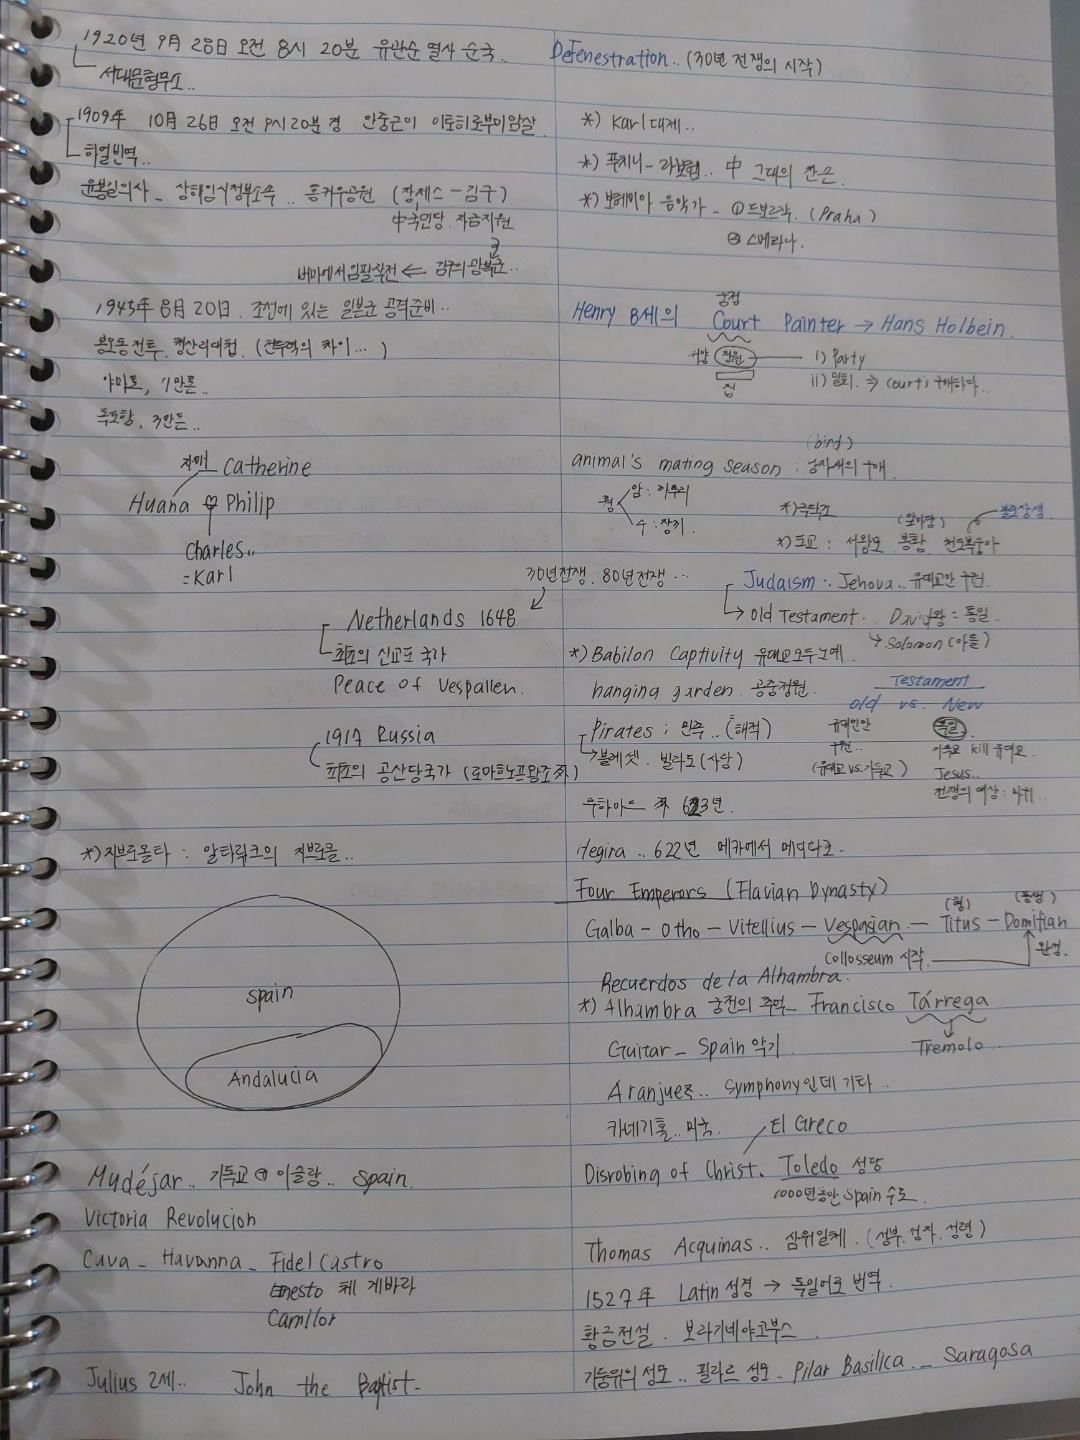 1920년 9月 28日 오전 8시 20분 유관순 열사 순국..
서대문형무소..
1909年 10月 26日 오전 9시 20분 경 안중근이 이토히로부미 암살.
하얼빈역..
윤봉길의사 - 상해임시정부소속.. 홍커우공원 (장제스 - 김구)
中국민당. 자금지원
버마에서 임팔작전 ⇐ 김구의 광복군..
1945年 8月 20日. 조선에 있는 일본군 공격준비..
봉오동전투. 청산리대첩. (전투력의 차이...)
야마토, 7만톤..
독도함, 3만톤..
자매 Catherine
Huana ♡ Philip
Charles..
= Karl
30년전쟁. 80년전쟁...
Netherlands 1648
최초의 신교도 국가
Peace of Vespallen.
1917 Russia
최초의 공산당국가 (로마노프왕조 끝)
*) 지브로올타 : 알타리크의 지브로올..
Spain
Andalucia
Mudéjar.. 기독교 ⊕ 이슬람.. Spain.
Victoria Revolucion
Cuva - Havanna - Fidel Castro
Ernesto 체 게바라
Camilor
Julius 2세.. John the Baptist-
Defenestration.. (30년 전쟁의 시작)
*) Karl대제..
*) 푸치니 - 라보엠.. 中 그대의 찬손.
*) 보헤미아 음악가 - ① 드보르작. (Praha)
② 스메타나.
궁정
Henry 8세의 Court Painter → Hans Holbein.
서양 정원 i) Party
집 ii) 밀회. ⇒ Court; 구애하다..
(bird)
animal's mating season : 남자새의 구애.
꿩 암 : 까투리
수 : 장끼
*)
*) 도교 : 서왕모. 봉황. 천도복숭아
불로장생
Judaism.. Jehova.. 유대교만 구원.
→ Old Testament. David왕 = 통일.
↳ Solomon (아들)
*) Babilon Captivity 유대교모두노예.
hanging garden. 공중정원.
Testament
old vs. New
Pirates ; 민족.. (해적)
→ 블레셋. 빌라도 (사람)
유대인만
구원..
(유대교 vs. 기독교)
독일.
기독교 kill 유대교
Jesus..
전쟁의 예상 :
무하마드 632년.
Hegira.. 622년 메카에서 메디나로-
Four Emperors (Flavian Dynasty)
(형) (동생)
Galba - Otho - Vitellius - Vespasian - Titus - Domitian
Collosseum 시작. 완성.
Recuerdos de la Alhambra.
*) Alhambra 궁전의 추억 - Francisco Tárrega
Tremolo..
Guitar - Spain 악기.
Aranjuez.. Symphony인데 기타..
카네기홀.. 미국. El Greco
Disrobing of Christ. Toledo 성당
1000년동안 Spain 수도.
Thomas Acquinas.. 삼위일체. (성부.성자.성령)
1527年 Latin 성경 → 독일어로 번역.
황금전설. 보라기네야코부스.
기둥위의 성모.. 필라르 성모.. Pilar Basilica.. - Saragosa